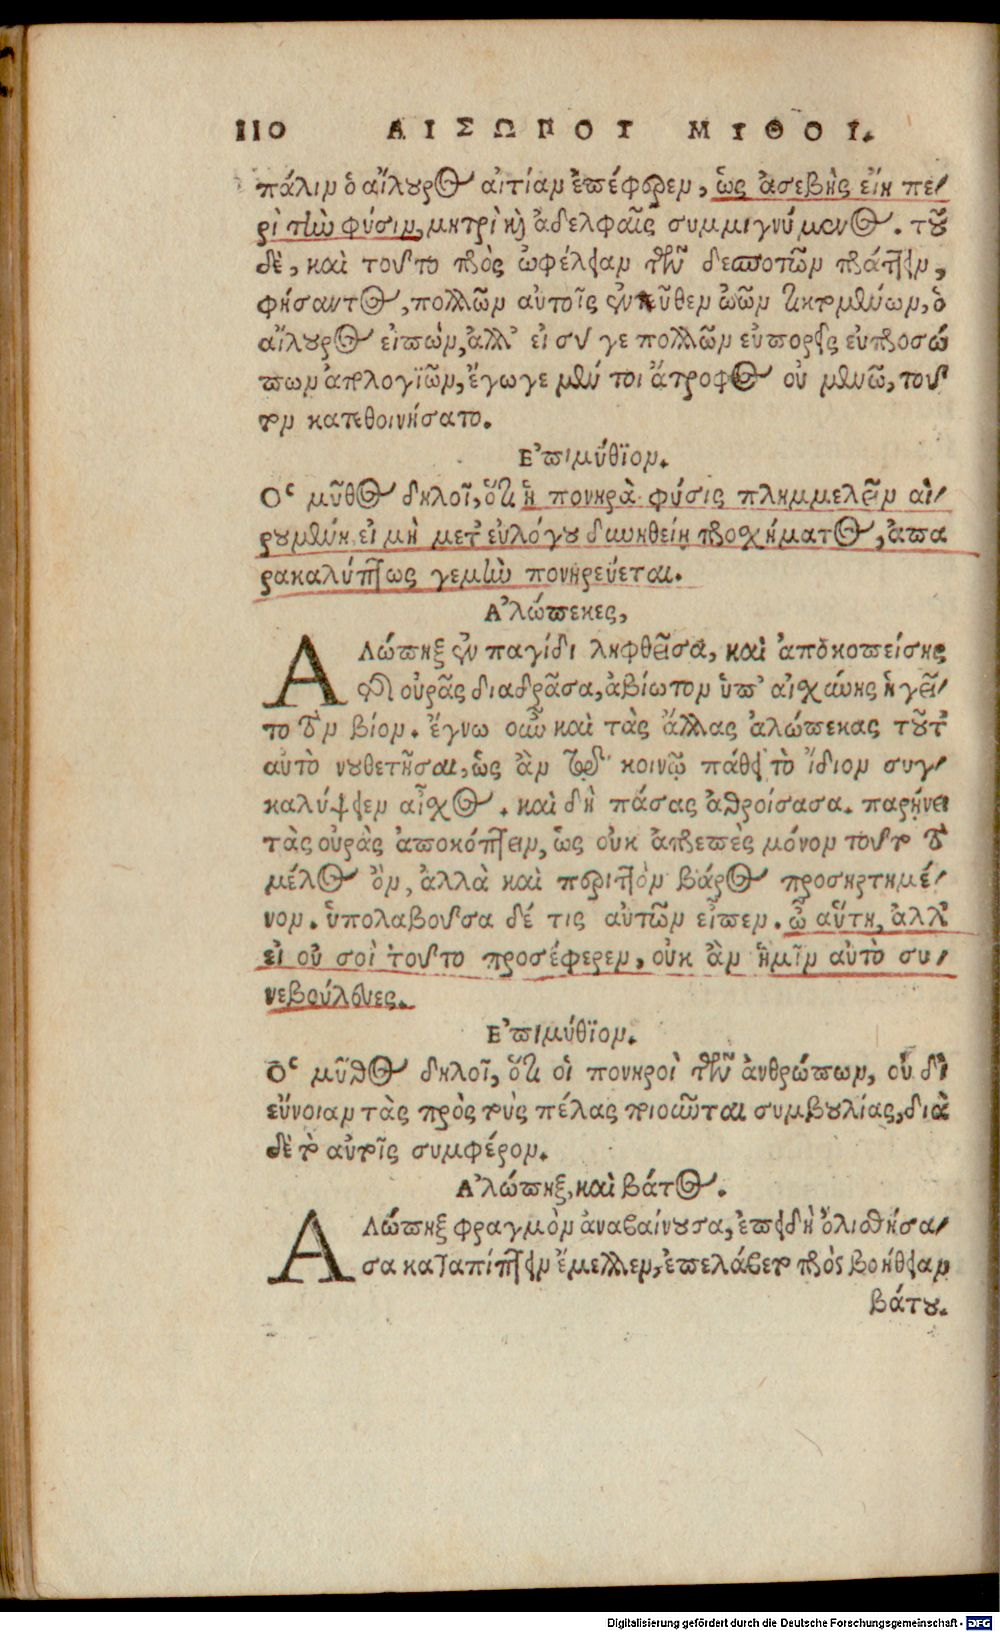 110 ΑΙΣΩΠΟΥ ΜΥΘΟΙ.
πάλιν ὁ αἴλουρος αἰτίαν ἐπέφερεν, ὡς ἀσεβὴς εἴη πε-
ρὶ τὴν φύσιν, μητρὶ καὶ ἀδελφαῖς συμμιγνύμενος. τοῦ
δὲ, καὶ τοῦτο πρὸς ὠφέλειαν τῶν δεσποτῶν πράττειν,
φήσαντος, πολλῶν αὐτοῖς ἐντεῦθεν ὠῶν τικτομένων, ὁ
αἴλουρος εἰπὼν, ἀλλ' εἰ σύ γε πολλῶν εὐπορεῖς εὐπροσώ
πων ἀπολογϊῶν, ἔγωγε μέν τοι ἄτροφος οὐ μενῶ, τοῦ
τον κατεθοινήσατο.
Ἐπιμύθϊον.
Ὁ μῦθος δηλοῖ, ὅτι ἡ πονηρὰ φύσις πλημμελεῖν αἱ-
ρουμένη, εἰ μὴ μετ' εὐλόγου δυνηθείη προσχήματος, ἀπα
ρακαλύπτως γε μὴν πονηρεύεται.
Ἀλώπεκες,
ΑΛώπηξ ἐν παγίδι ληφθεῖσα, καὶ ἀποκοπείσης
τῆς οὐρᾶς διαδρᾶσα, ἀβίωτον ὑπ' αἰσχύνης ἡγεῖ-
το τὸν βίον. ἔγνω οὖν καὶ τὰς ἄλλας ἀλώπεκας τοῦτ'
αὐτὸ νουθετῆσαι, ὡς ἂν τῷ κοινῷ πάθει τὸ ἴδιον συγ-
καλύψειεν αἶσχος. καὶ δὴ πάσας ἀθροίσασα. παρήνει
τὰς οὐρὰς ἀποκόπτειν, ὡς οὐκ ἀπρεπὲς μόνον τοῦτο τὸ
μέλος ὂν, ἀλλὰ καὶ περιττὸν βάρος προσηρτημέ-
νον. ὑπολαβοῦσα δέ τις αὐτῶν εἶπεν. ὦ αὕτη, ἀλλ'
εἰ οὐ σοὶ τοῦτο προσέφερεν, οὐκ ἂν ἡμῖν αὐτὸ συ-
νεβούλευες.
Ἐπιμύθϊον.
Ὁ μῦθος δηλοῖ, ὅτι οἱ πονηροὶ τῶν ἀνθρώπων, οὐ δι'
εὔνοιαν τὰς πρὸς τοὺς πέλας ποιοῦνται συμβουλίας, διὰ
δὲ τὸ αὐτοῖς συμφέρον.
Ἀλώπηξ, καὶ βάτος.
ΑΛώπηξ φραγμὸν ἀναβαίνουσα, ἐπειδὴ ὀλισθήσα-
σα καταπίπτειν ἔμελλεν, ἐπελάβετο πρὸς βοήθειαν
βάτου.
Digitalisierung gefördert durch die Deutsche Forschungsgemeinschaft - DFG